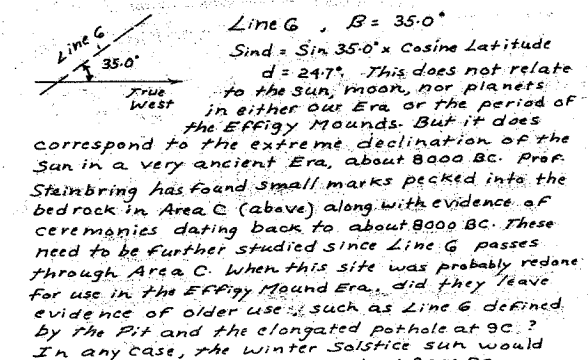 Line G
35.0°
True
West
Line G, B = 35.0°
Sind = Sin 35.0° x Cosine Latitude
d = 24.7°. This does not relate
to the sun, moon, nor planets
in either our Era or the period of
the Effigy Mounds. But it does
correspond to the extreme declination of the
Sun in a very ancient Era, about 8000 BC. Prof.
Steinbring has found small marks pecked into the
bedrock in Area C (above) along with evidence of
ceremonies dating back to about 8000 BC. These
need to be further studied since Line G passes
through Area C. When this site was probably redone
for use in the Effigy Mound Era, did they leave
evidence of older use, such as Line G defined
by the Pit and the elongated pothole at 9C?
In any case, the winter Solstice sun would